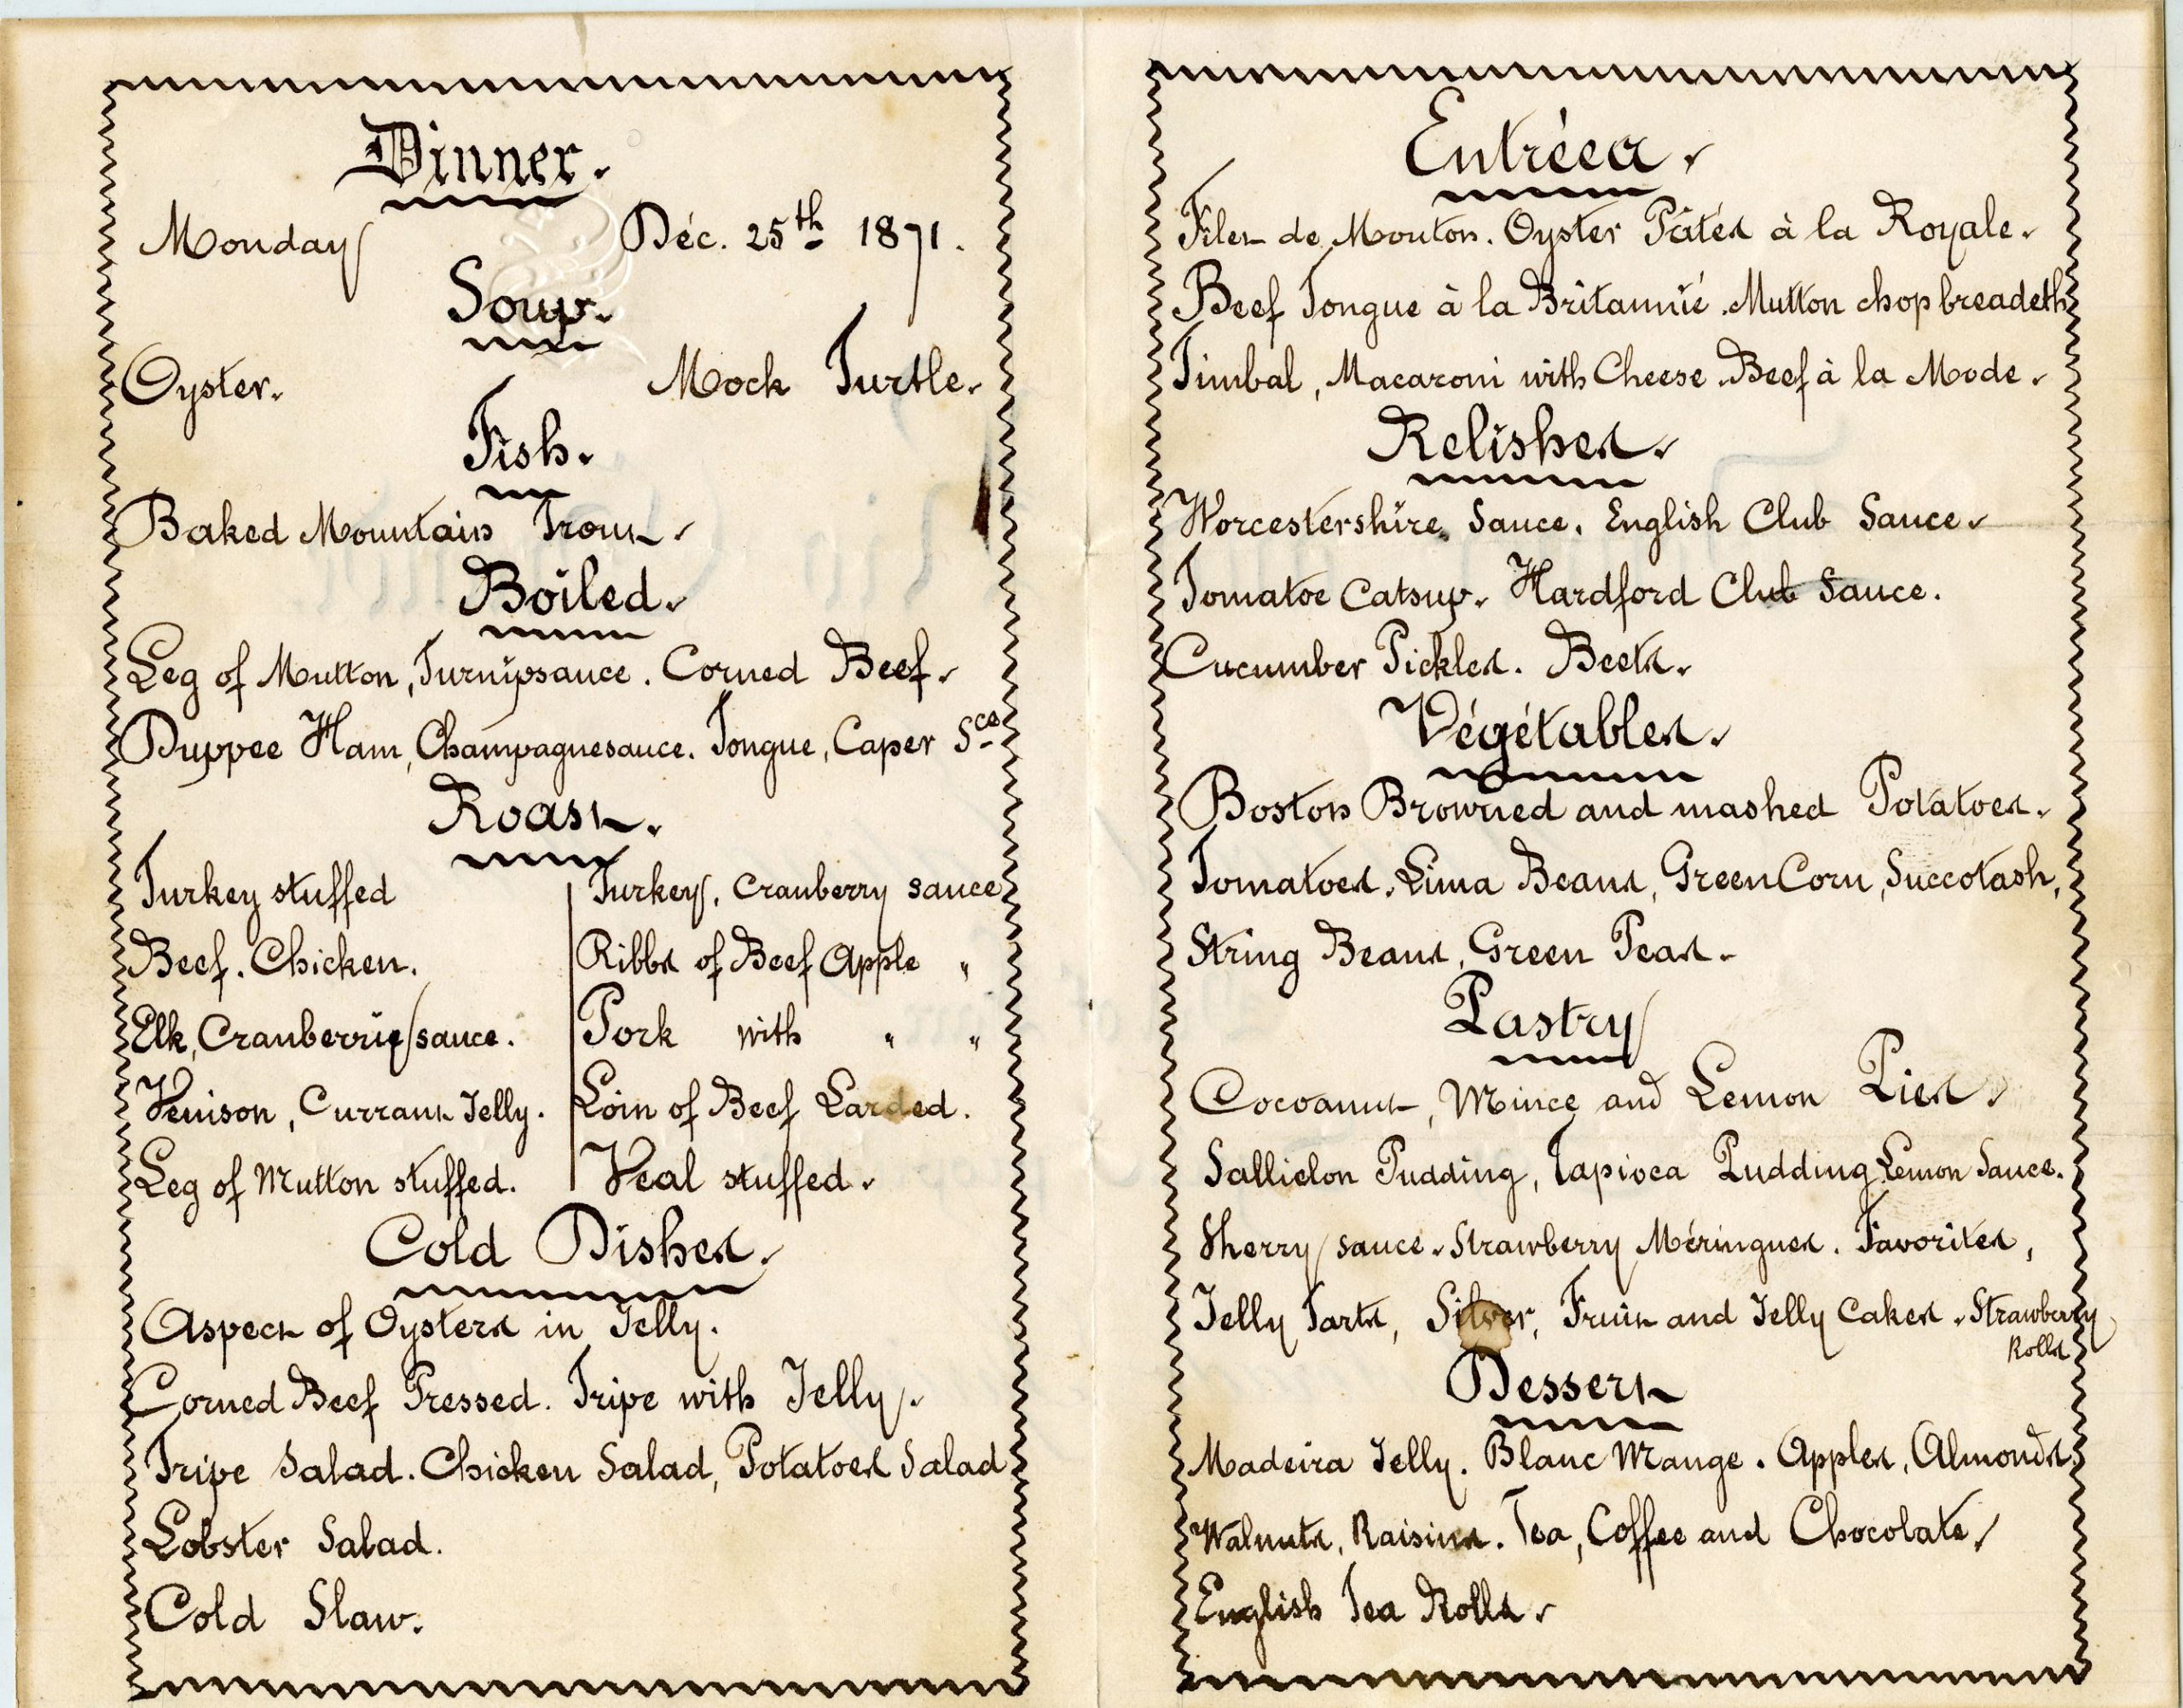 Dinner.
Monday Déc. 25th 1871.
Soup.
Oyster. Mock Turtle.
Fish.
Baked Mountain Trout.
Boiled.
Leg of Mutton, Turnipsauce. Corned Beef.
Duppee Ham, Champagnesauce. Tongue, Caper Sce
Roast.
Turkey stuffed
Beef. Chicken.
Elk, Cranberrie sauce.
Venison, Currant Jelly.
Leg of Mutton stuffed.
Turkey, Cranberry sauce
Ribbs of Beef Apple "
Pork with " "
Loin of Beef Larded.
Veal stuffed.
Cold Dishes.
Aspect of Oysters in Jelly.
Corned Beef Pressed. Tripe with Jelly.
Tripe Salad. Chicken Salad, Potatoes Salad
Lobster Salad.
Cold Slaw.
Entrées.
Filet de Mouton. Oyster Pâtés à la Royale.
Beef Tongue à la Britannié. Mutton chop breadeth
Timbal, Macaroni with Cheese. Beef à la Mode.
Relishes.
Worcestershire Sauce. English Club Sauce.
Tomatoe Catsup. Hardford Club Sauce.
Cucumber Pickles. Beets.
Végétables.
Boston Browned and mashed Potatoes.
Tomatoes. Lima Beans, Green Corn, Succotash,
String Beans, Green Peas.
Pastry
Cocoanut, Mince and Lemon Pies.
Pudding, Tapioca Pudding Lemon Sauce.
Sherry sauce. Strawberry Méringues. Favorites,
Jelly Tarts, Silver, Fruit and Jelly Cakes. Strawberry
Rolls
Dessert
Madeira Jelly. Blanc Mange. Apples, Almonds,
Walnuts, Raisins. Tea, Coffee and Chocolate,
English Tea Rolls.